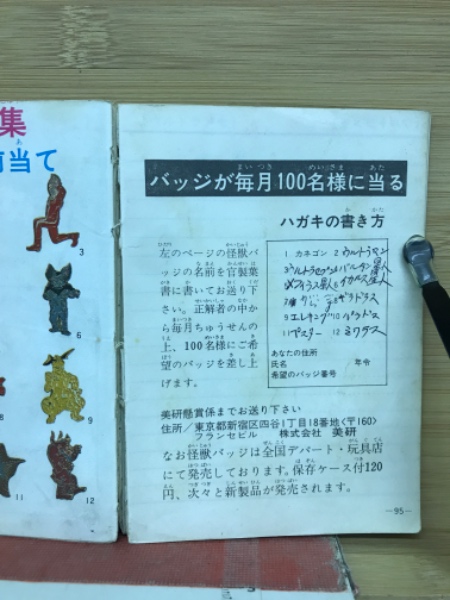 集
当て
3
6
8
9
11
12
バッジが毎月100名様に当る
ハガキの書き方
左のページの怪獣バ
ッジの名前を官製葉
書に書いてお送り下
さい。正解者の中か
ら毎月ちゅうせんの
上、100名様にご希
望のバッジを差し上
げます。
1 カネゴン 2 ウルトラマン
3 ウルトラセブン 4 バルタン星人
6 イカルス星人
8 ギラドラス
9 エレキング 10 パンドラ
11 ペスター 12
あなたの住所
氏名 年令
希望のバッジ番号
美研懸賞係までお送り下さい
住所/東京都新宿区四谷1丁目18番地〈〒160〉
フランセビル 株式会社 美研
なお怪獣バッジは全国デパート・玩具店
にて発売しております。保存ケース付120
円、次々と新製品が発売されます。
—95—